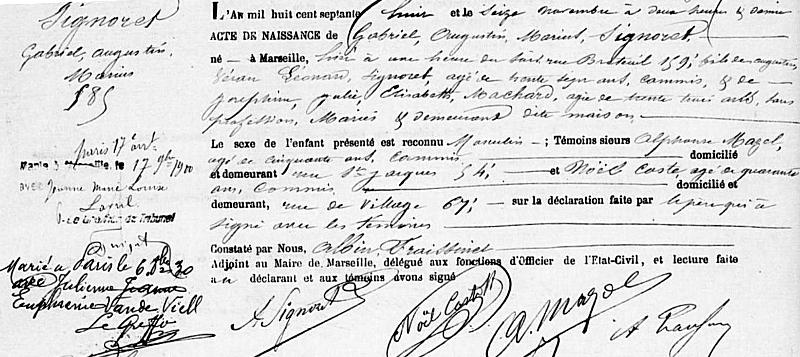 Signoret
Gabriel, Augustin,
Marius
585
Paris 17e arrt
Marié à Marseille, le 17 9bre 1900
avec Jeanne Marie Louise
Le Greffier du Tribunal
Marié à Paris le 6 30
avec Julienne Joanna
Vande Viell
Le Greffier
L'AN mil huit cent septante huit et le seize novembre à deux heures & demie
ACTE DE NAISSANCE de Gabriel, Augustin, Marius, Signoret,
né — à Marseille, hier à une heure du soir, rue Breteuil 159, fils de Augustin
Véran Léonard, Signoret, agé de trente sept ans, commis, & de —
Joséphine, Julie, Elisabeth, Machard, agée de trente trois ans, sans
profession, Mariés & demeurant dite maison.
Le sexe de l'enfant présenté est reconnu Masculin — ; Témoins sieurs Alphonse Mazel,
agé de cinquante ans, commis domicilié
et demeurant rue St Jacques 54, — et Noël Coste, agé de quarante
ans, commis domicilié et
demeurant, rue de Village 67, — sur la déclaration faite par le père qui a
signé avec les témoins
Constaté par Nous, Albin Fraissinet
Adjoint au Maire de Marseille, délégué aux fonctions d'Officier de l'Etat-Civil, et lecture faite
au déclarant et aux témoins ont signé
A Signoret Noël Coste A. Mazel